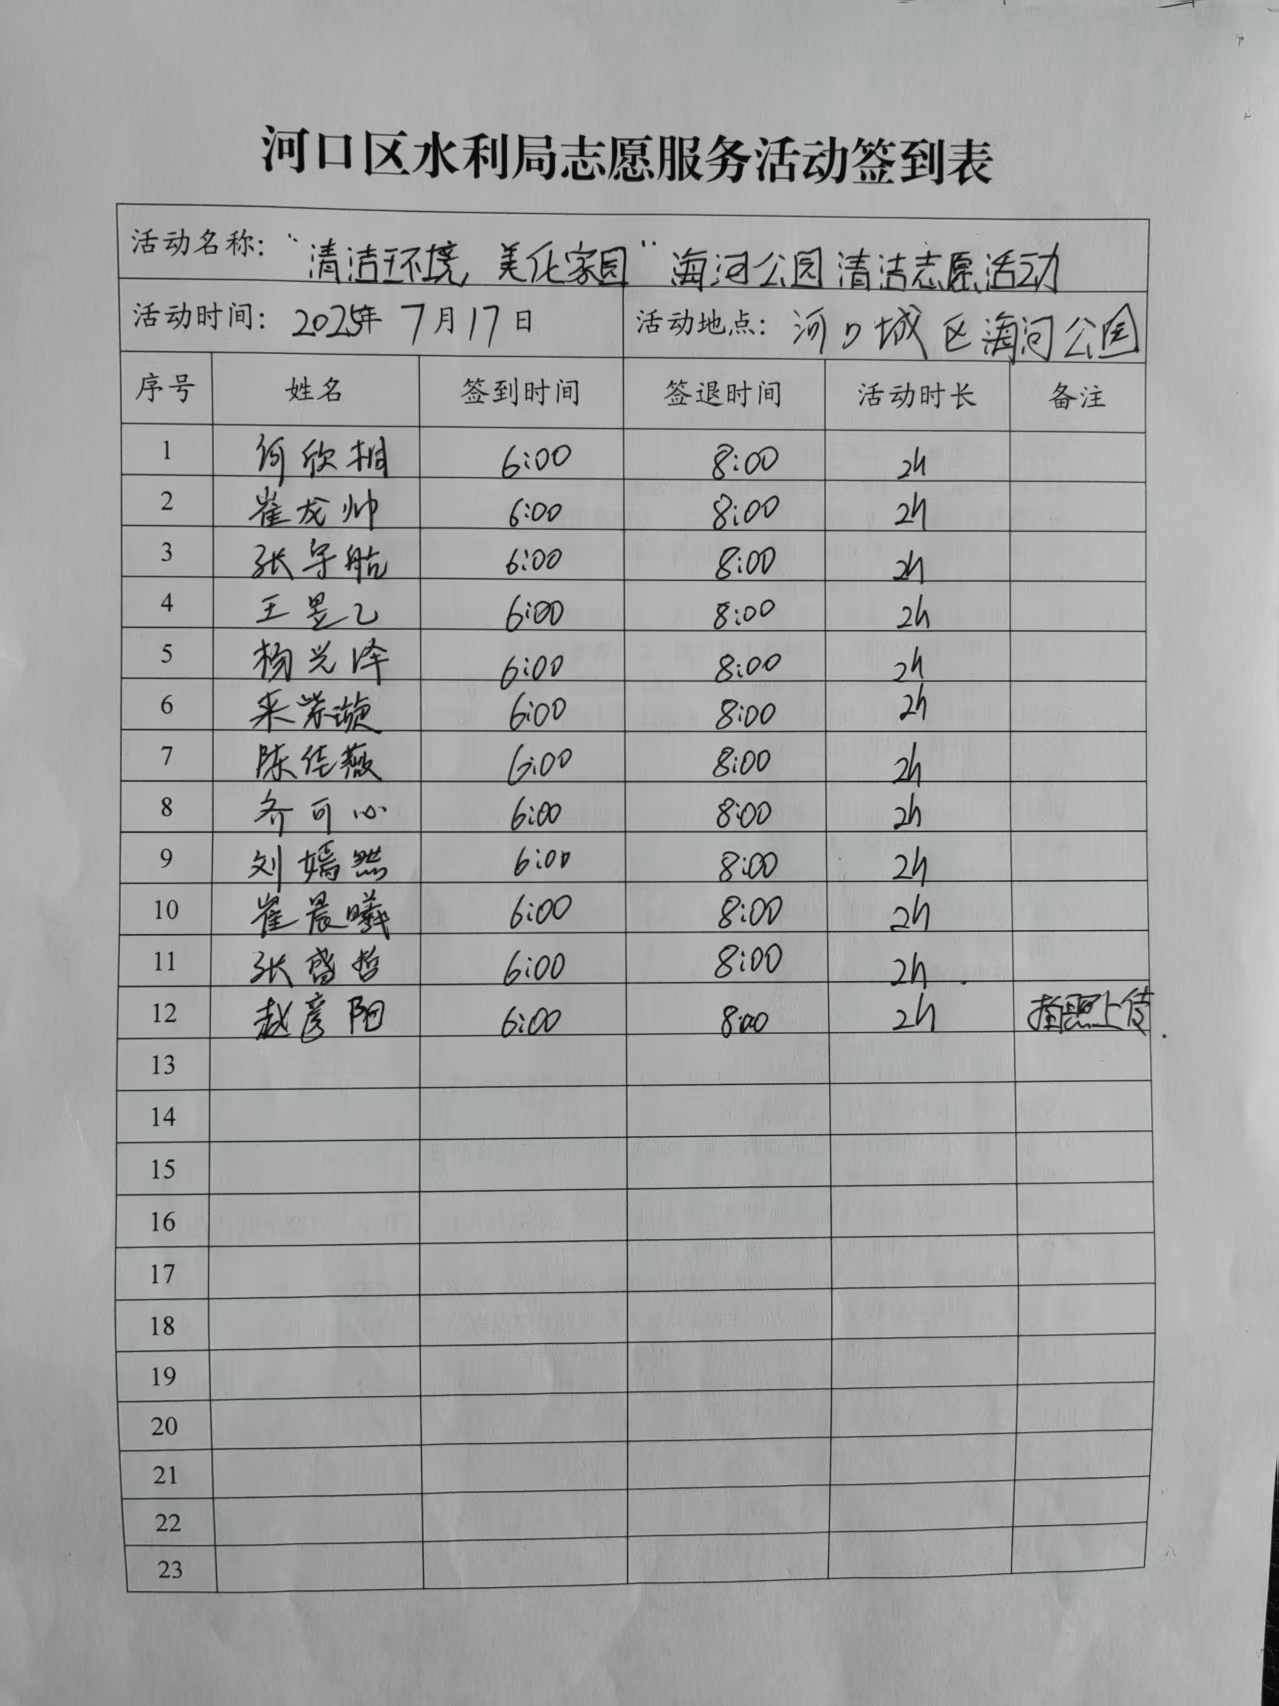 河口区水利局志愿服务活动签到表
活动名称：“清洁环境，美化家园”海河公园清洁志愿活动
活动时间：2025年7月17日 活动地点：河口城区海河公园
序号 姓名 签到时间 签退时间 活动时长 备注
1 何欣桐 6:00 8:00 2h
2 崔龙帅 6:00 8:00 2h
3 张宇航 6:00 8:00 2h
4 王昱乙 6:00 8:00 2h
5 杨光泽 6:00 8:00 2h
6 6:00 8:00 2h
7 陈佳薇 6:00 8:00 2h
8 齐可心 6:00 8:00 2h
9 刘嫣然 6:00 8:00 2h
10 崔晨曦 6:00 8:00 2h
11 张哲 6:00 8:00 2h
12 赵彦阳 6:00 8:00 2h 拍照上传
13
14
15
16
17
18
19
20
21
22
23